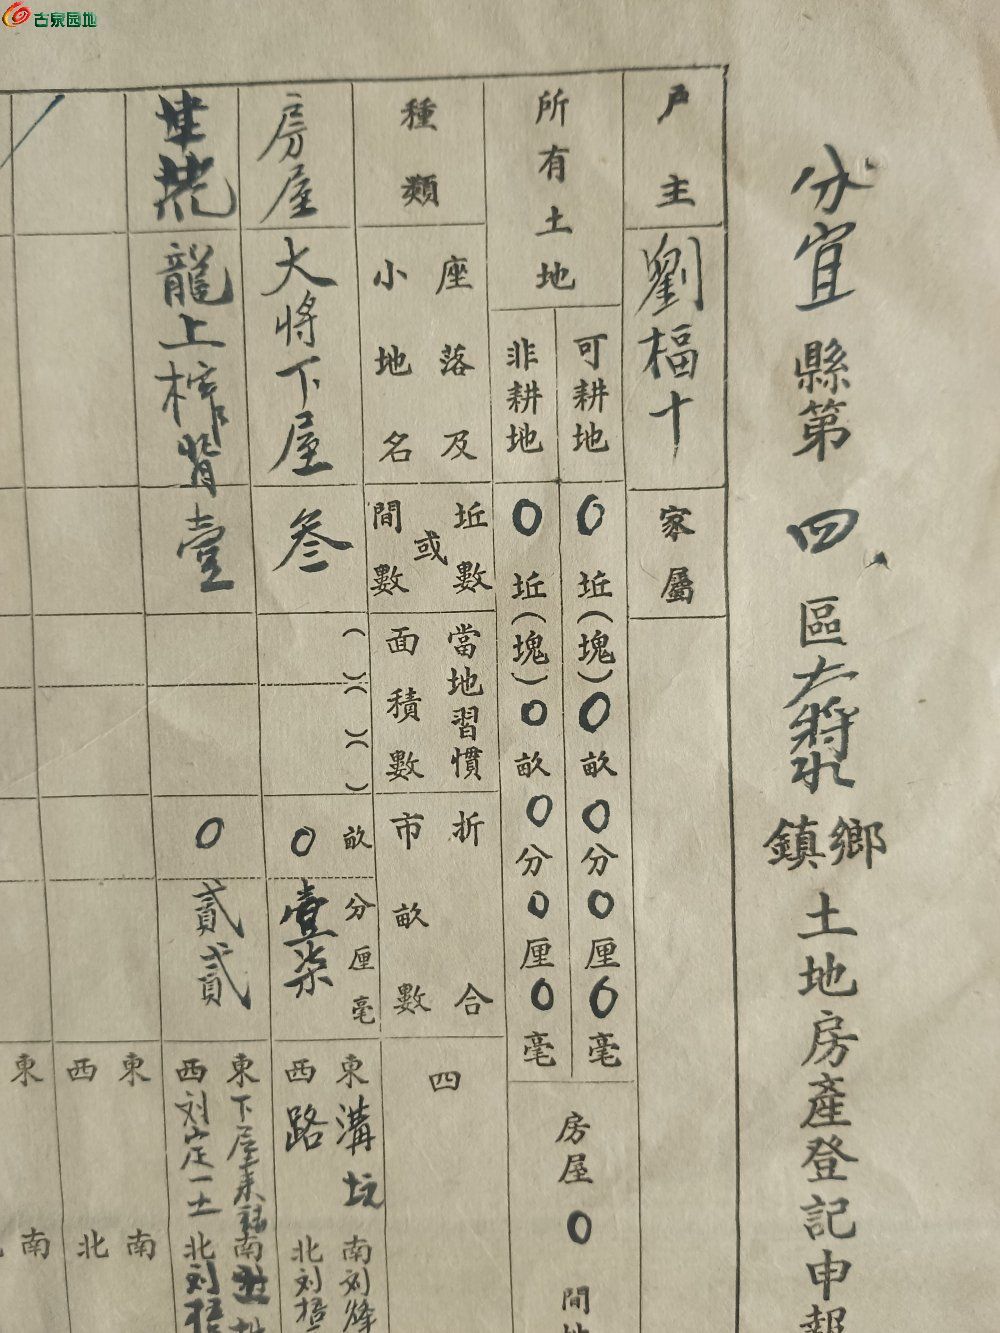 古泉园地
分宜縣第四區大將水鄉鎮土地房產登記申報
戶主
劉楅十
家屬
所有土地
可耕地
0坵(塊)0畝0分0厘0毫
非耕地
0坵(塊)0畝0分0厘0毫
房屋0間地
種類
座落及
小地名
坵數
或
間數
當地習慣
面積數
折合
市畝數
四
房屋
大將下屋
叁
( )( )( )
0畝
壹柒
分厘毫
東溝坑
西路
南刘
北刘
龍上榨背
壹
0
貳貳
東下屋
西刘定一土
南
北刘
東
西
南
北
東
南